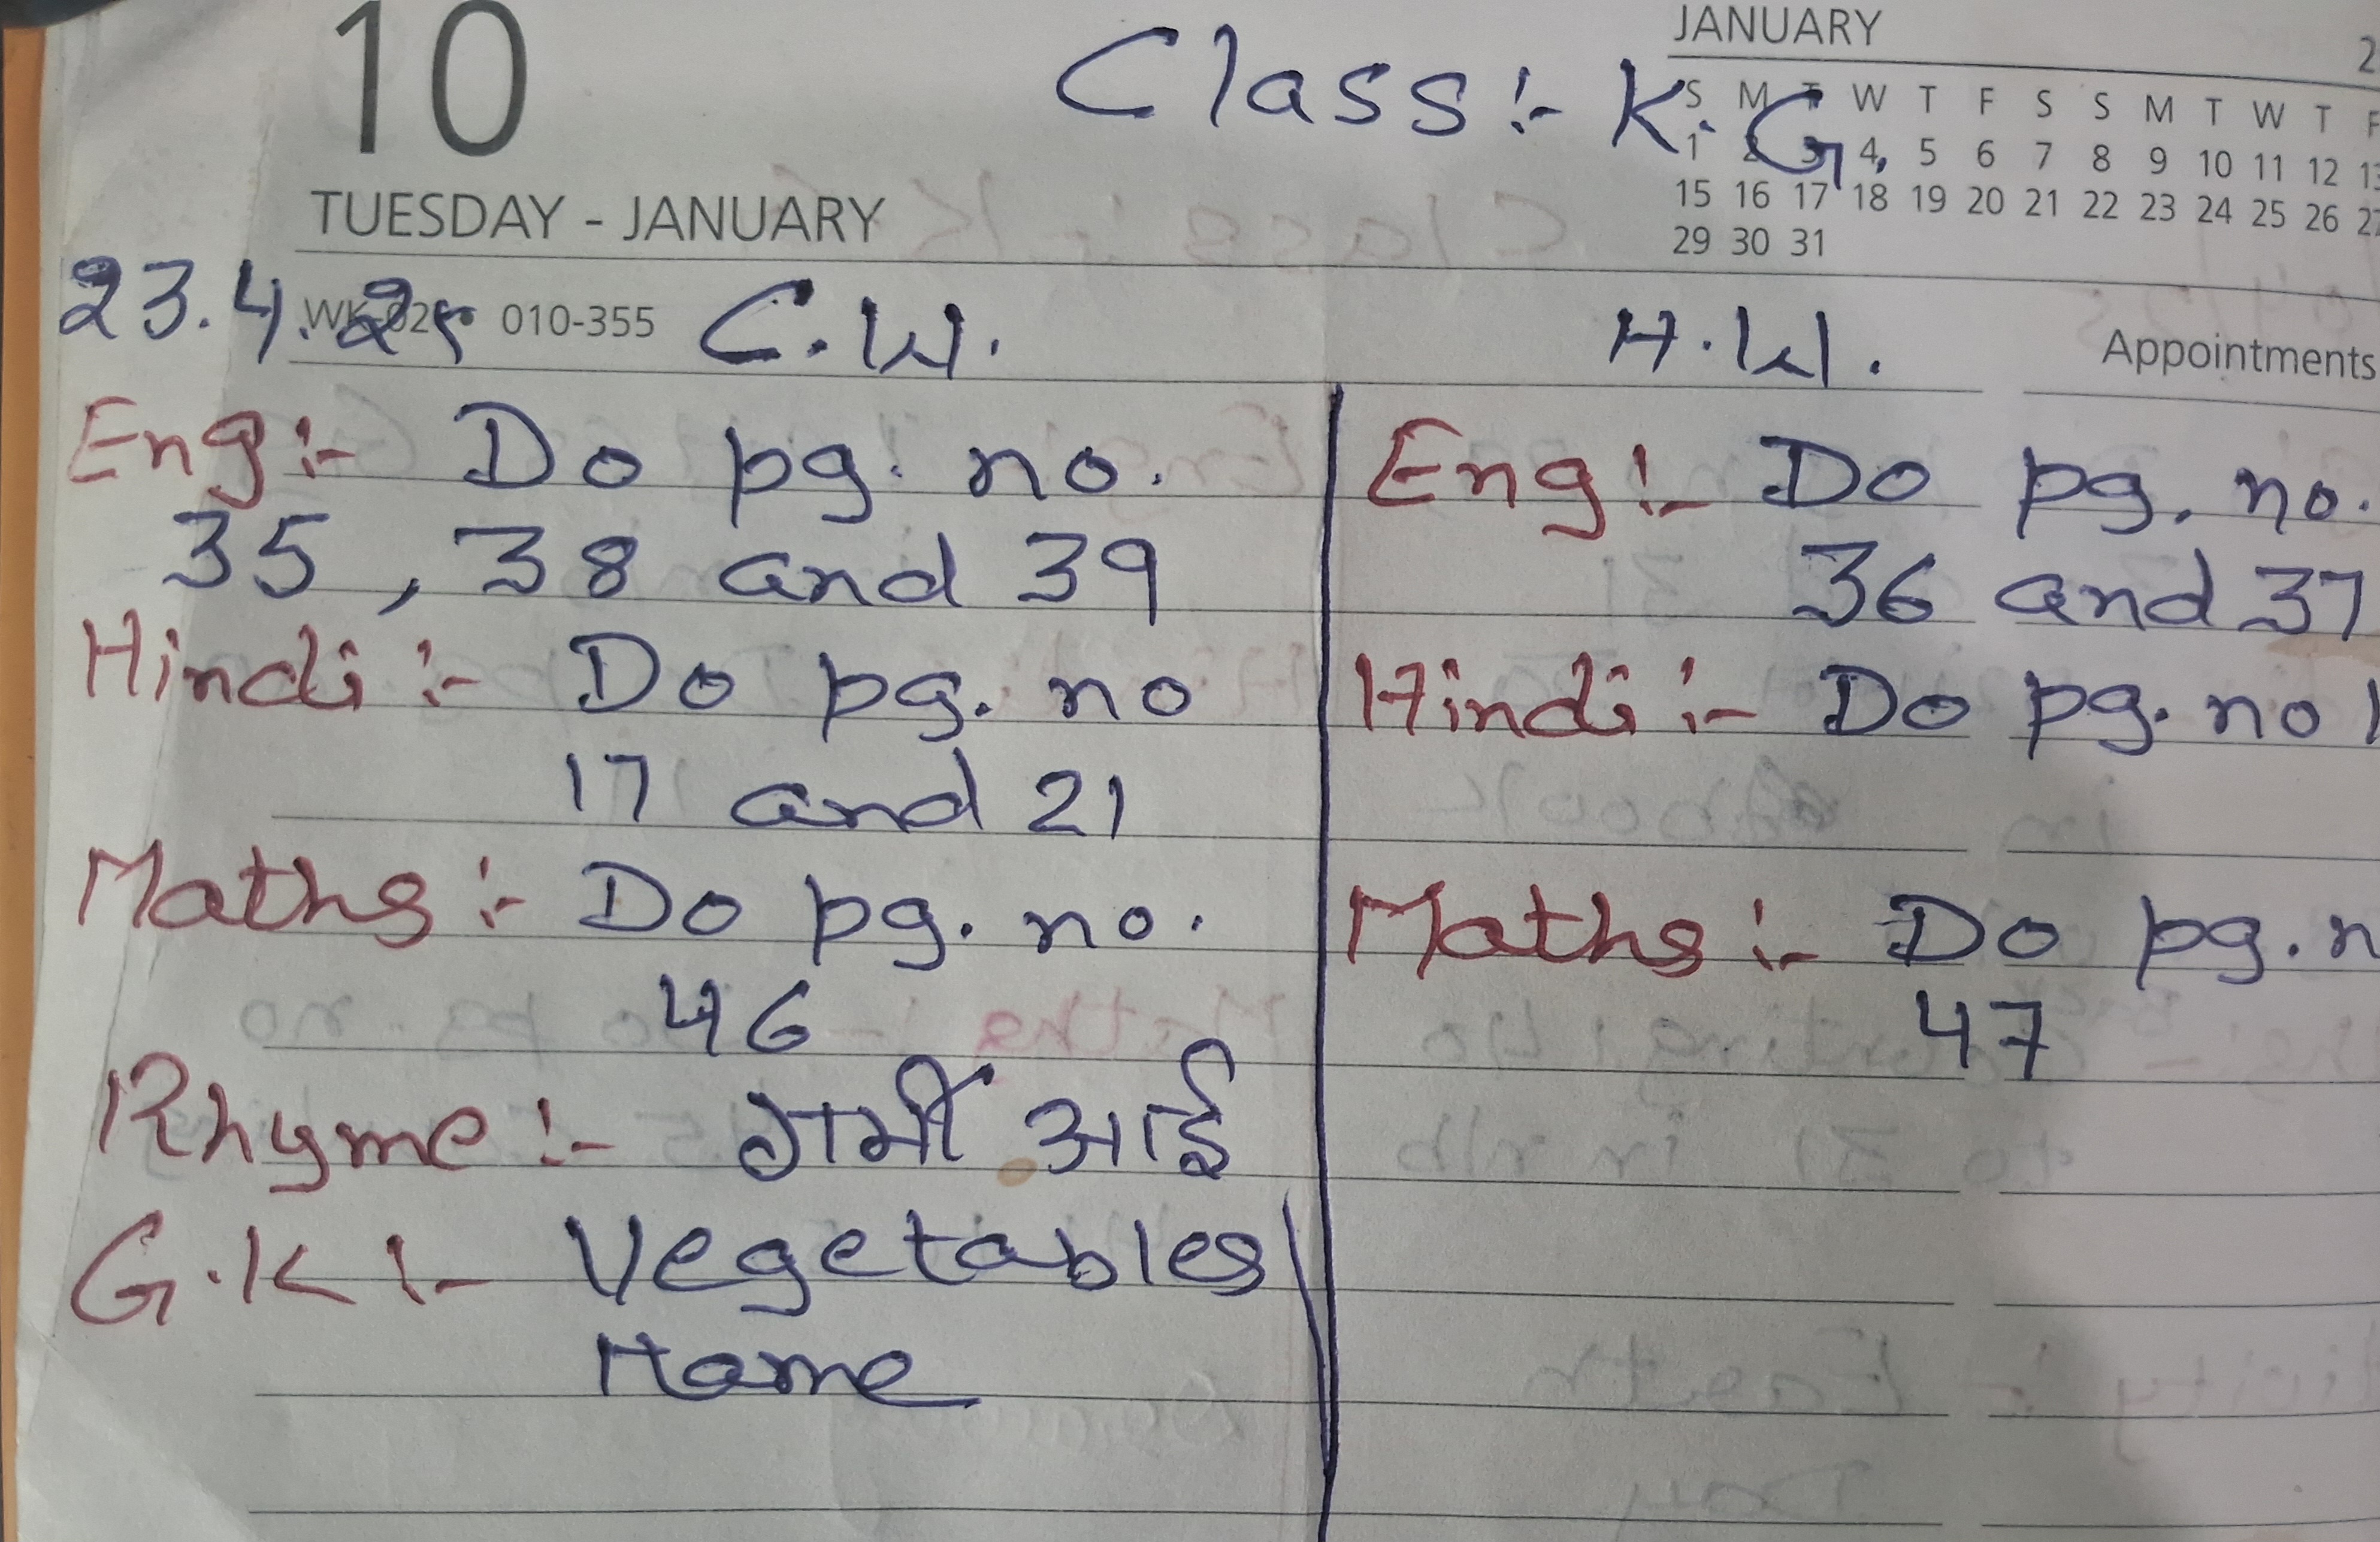 10
Class :- K.G.
JANUARY
S M T W T F S S M T W T F
1 2 3 4 5 6 7 8 9 10 11 12 13
15 16 17 18 19 20 21 22 23 24 25 26 27
29 30 31
TUESDAY - JANUARY
23.4.25 C.W.
WK-02 010-355
H.W.
Appointments
Eng :- Do pg. no.
35, 38 and 39
Hindi :- Do pg. no
17 and 21
Maths :- Do pg. no.
46
Rhyme :- गर्मी आई
G.K :- Vegetables
Name
Eng :- Do pg. no.
36 and 37
Hindi :- Do pg. no
Maths :- Do pg. n
47